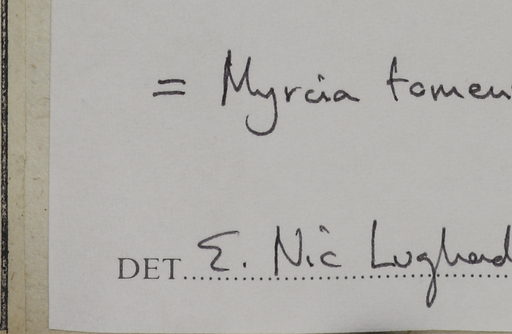 = Myrcia tomen
DET. E. Nic Lughad